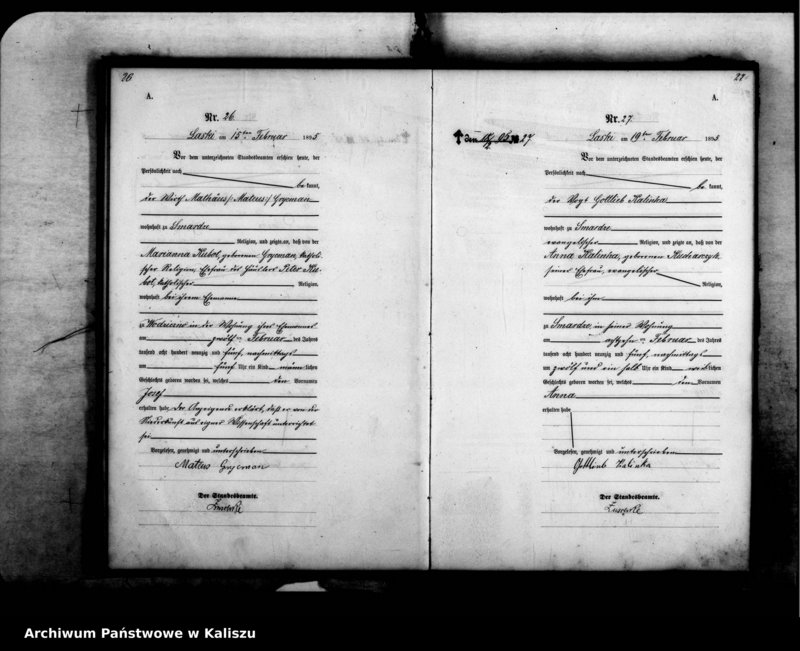 26
A.
Nr. 26.
Laski am 15ten Februar 1895
Vor dem unterzeichneten Standesbeamten erschien heute, der
Persönlichkeit nach
bekannt,
der Wirth Mathäus /:Mateus:/ Grycman
wohnhaft zu Smardze
Religion, und zeigte an, daß von der
Marianna Kubot, geborenen Grycman, katholi-
scher Religion, Ehefrau des Häuslers Peter Ku-
bot, katholischer Religion,
wohnhaft bei ihrem Ehemanne
zu Wodziczno in der Wohnung ihres Ehemannes
am zwölften Februar des Jahres
tausend acht hundert neunzig und fünf, nachmittags
um fünf Uhr ein Kind männlichen
Geschlechts geboren worden sei, welches den Vornamen
Josef
erhalten habe. Der Anzeigende erklärt, daß er von der
Niederkunft aus eigner Wissenschaft unterrichtet
sei
Vorgelesen, genehmigt und unterschrieben
Mateus Grycman
Der Standesbeamte.
27
A.
Nr. 27.
Laski am 19ten Februar 1895
Vor dem unterzeichneten Standesbeamten erschien heute, der
Persönlichkeit nach
bekannt,
der Vogt Gottlieb Kalinka
wohnhaft zu Smardze
evangelischer Religion, und zeigte an, daß von der
Anna Kalinka, geborenen Kucharczyk
seiner Ehefrau, evangelischer
Religion,
wohnhaft bei ihm
zu Smardze, in seiner Wohnung
am Februar des Jahres
tausend acht hundert neunzig und fünf, nachmittags
um zwölf und ein halb Uhr ein Kind weiblichen
Geschlechts geboren worden sei, welches den Vornamen
Anna
erhalten habe
Vorgelesen, genehmigt und unterschrieben
Gottlieb Kalinka
Der Standesbeamte.
Archiwum Państwowe w Kaliszu